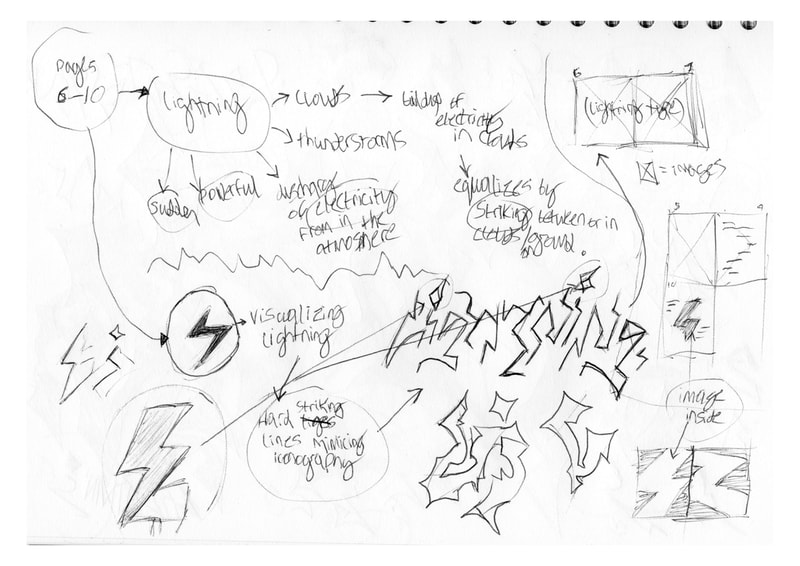 pages
6–10
lightning
clouds
buildup of
electricity
in clouds
thunderstorms
sudden
powerful
discharge
of electricity
from in the
atmosphere
equalizes by
striking between or in
clouds/ground.
6
7
(lightning type)
= images
visualizing
lightning
Hard striking
lines mimicing
iconography
lightning
10
image
inside